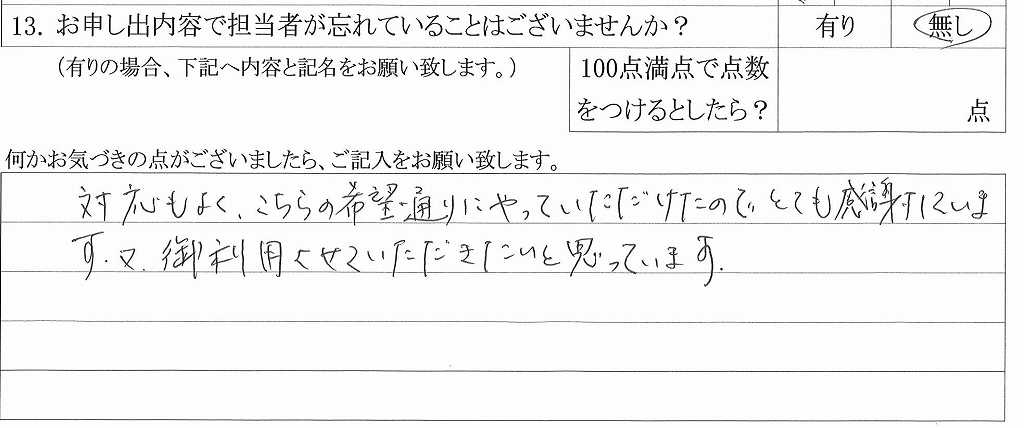 13. お申し出内容で担当者が忘れていることはございませんか？ 有り 無し
（有りの場合、下記へ内容と記名をお願い致します。） 100点満点で点数
をつけるとしたら？ 点
何かお気づきの点がございましたら、ご記入をお願い致します。
対応もよく、こちらの希望通りにやっていただけたので、とても感謝していま
す.又.御利用させていただきたいと思っています.